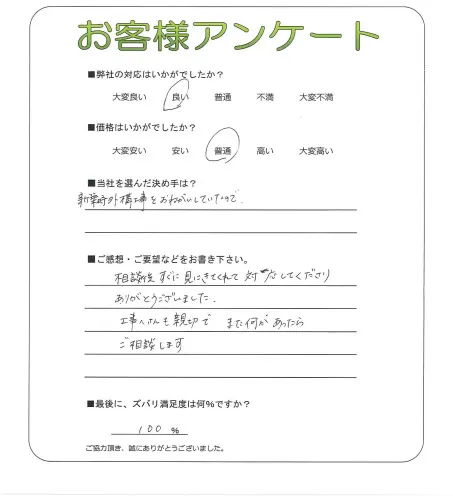 お客様アンケート
■弊社の対応はいかがでしたか？
大変良い 良い 普通 不満 大変不満
■価格はいかがでしたか？
大変安い 安い 普通 高い 大変高い
■当社を選んだ決め手は？
新築時外構工事をおねがいしていたので.
■ご感想・ご要望などをお書き下さい。
相談後すぐに見にきてくれて対応してくださり
ありがとうございました.
工事の人も親切で また何があったら
ご相談します
■最後に、ズバリ満足度は何％ですか？
100 %
ご協力頂き、誠にありがとうございました。